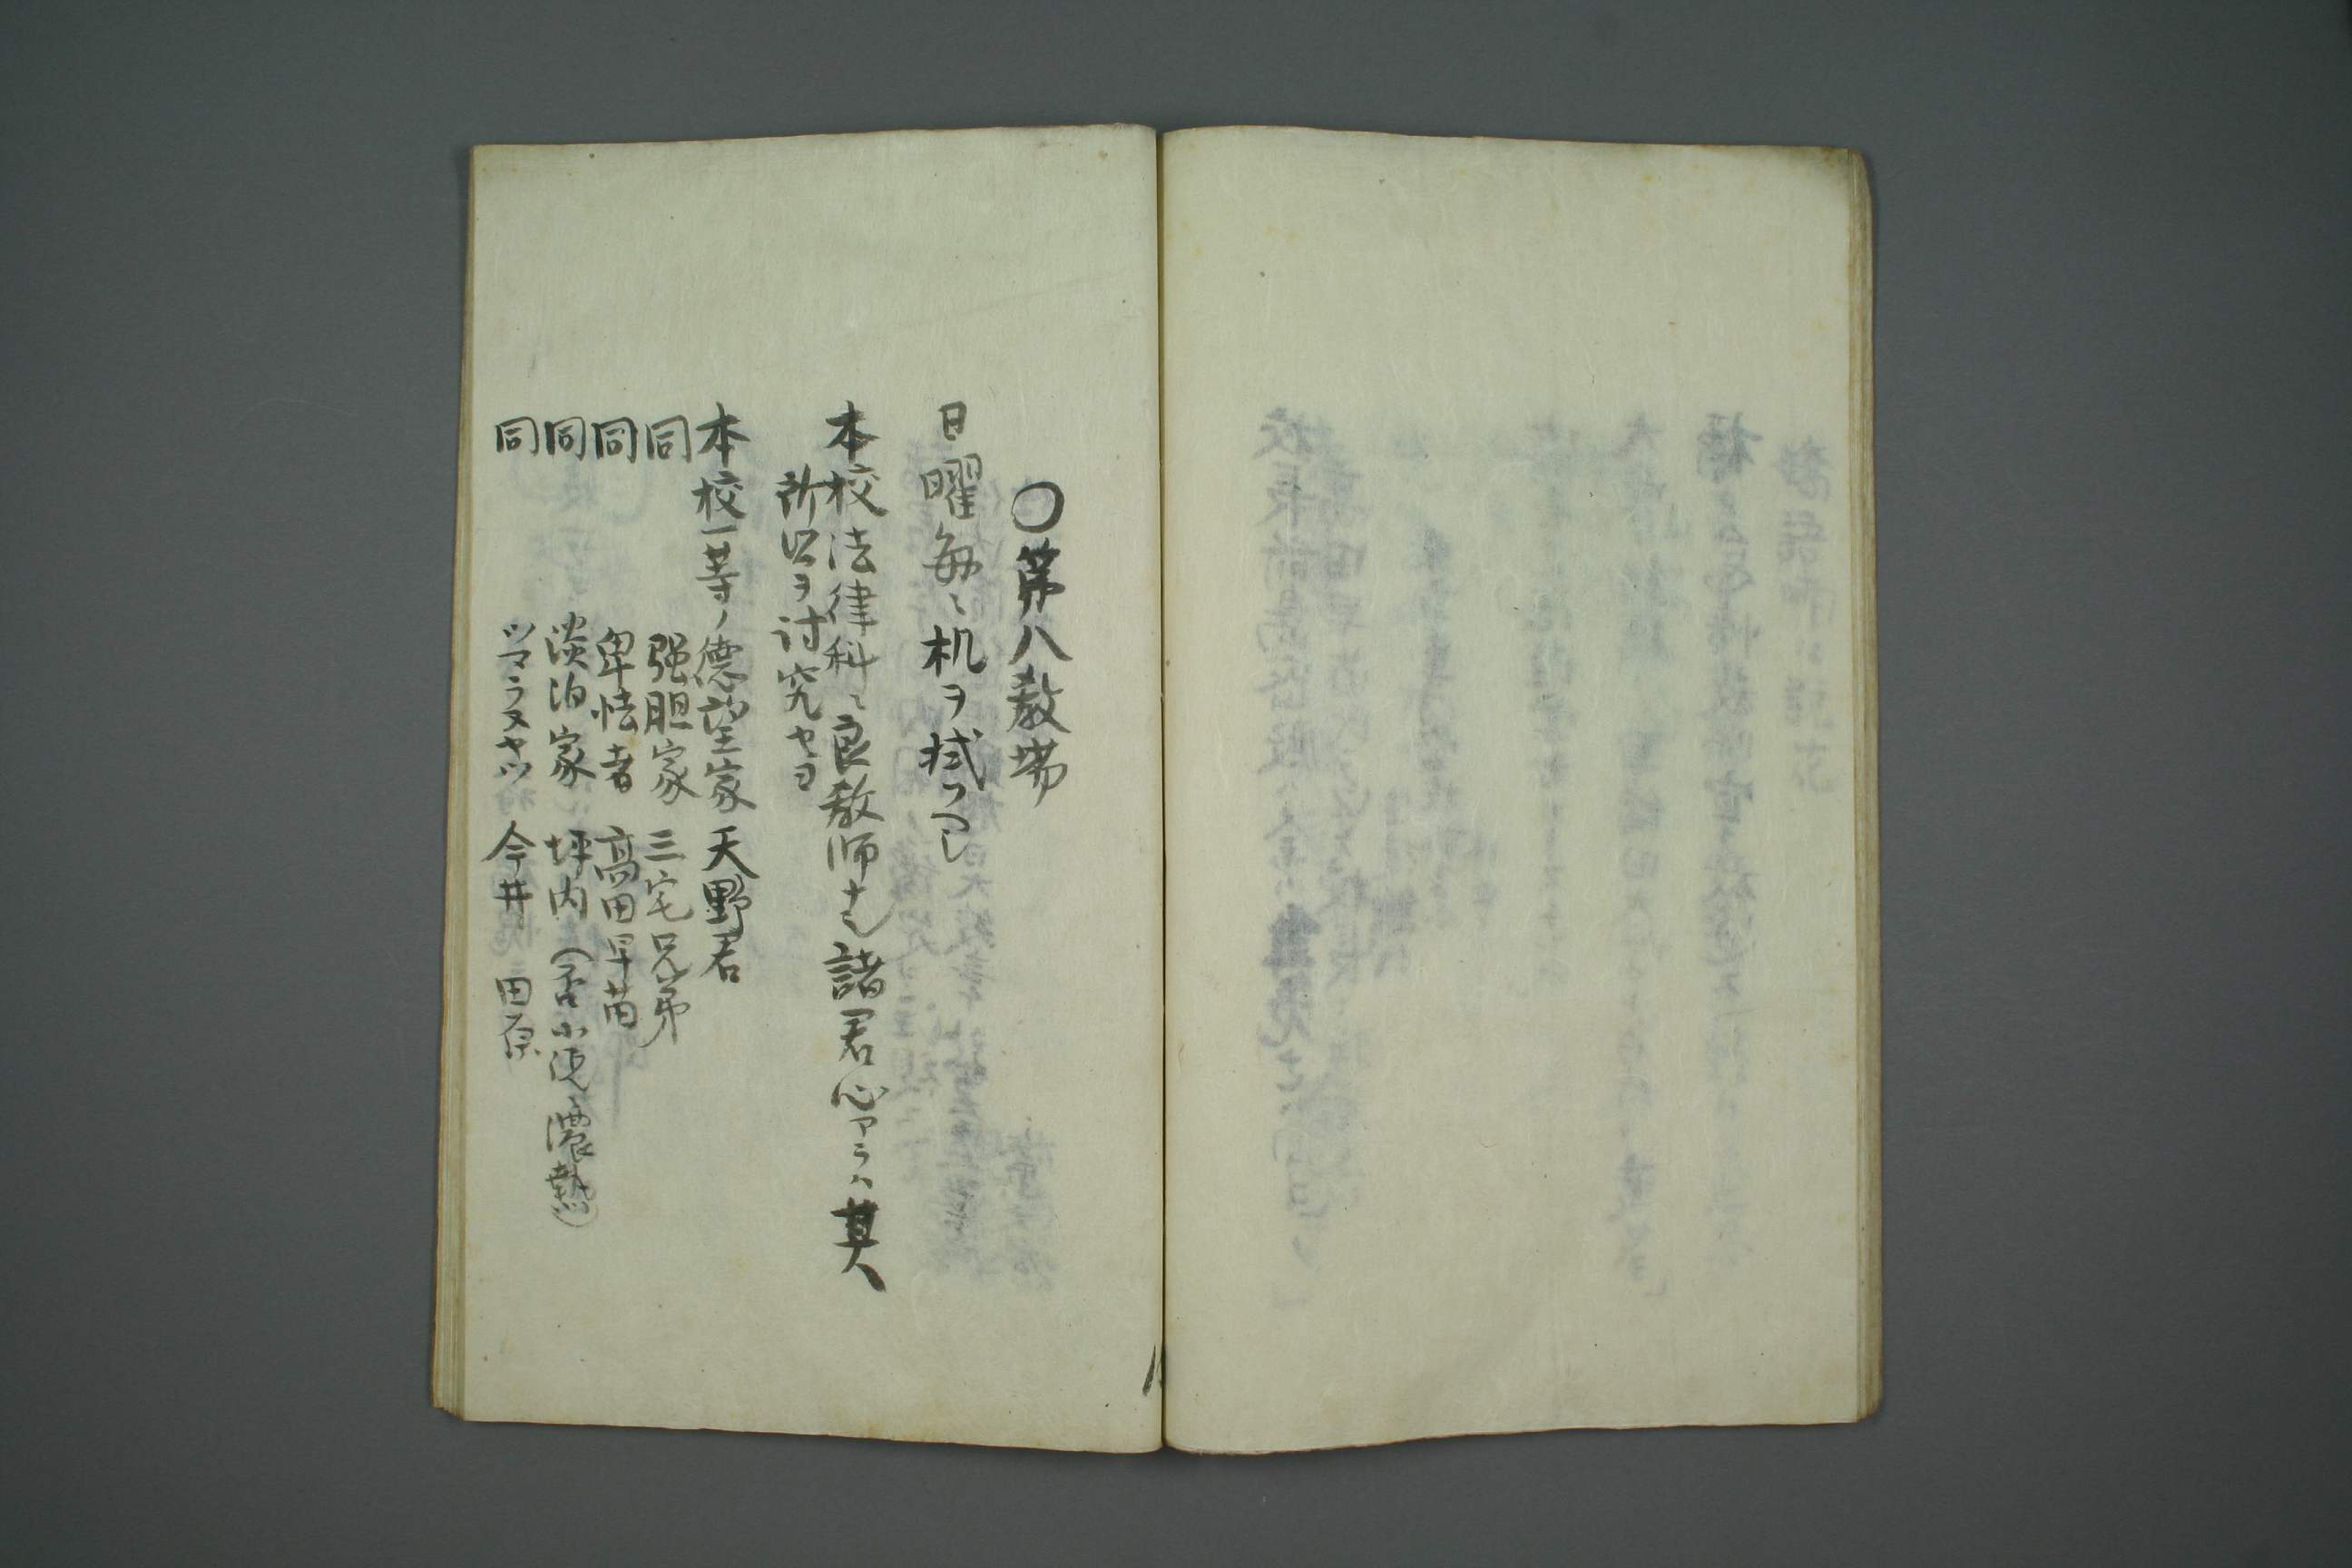 〇第八教場
日曜毎ニ机ヲ拭フヿ
本校法律科ニ良教師ナシ諸君心アラハ其
所以ヲ討究セヨ
本校一等ノ徳望家 天野君
同 強胆家 三宅兄弟
同 卑怯者 高田早苗
同 淡泊家 坪内（否小説ニ濃熱）
同 ツマラヌヤツ 今井 田原